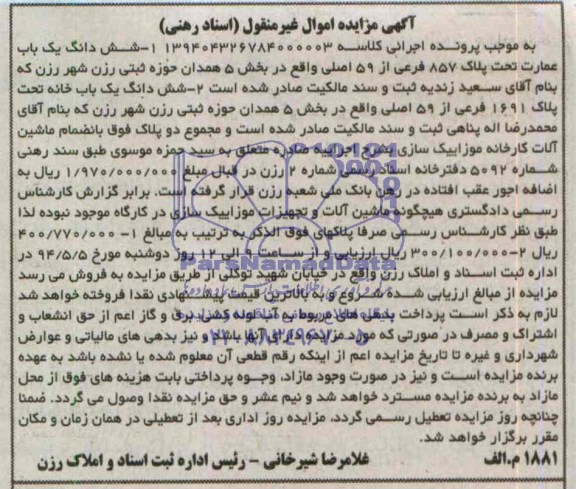 آگهی مزایده اموال غیرمنقول (اسناد رهنی)
به موجب پرونده اجرائی کلاسه ۱۳۹۴۰۴۳۲۶۷۸۴۰۰۰۰۰۳ ۱-شش دانگ یک باب
عمارت تحت پلاک ۸۵۷ فرعی از ۵۹ اصلی واقع در بخش ۵ همدان حوزه ثبتی رزن شهر رزن که
بنام آقای سعید زندیه ثبت و سند مالکیت صادر شده است ۲-شش دانگ یک باب خانه تحت
پلاک ۱۶۹۱ فرعی از ۵۹ اصلی واقع در بخش ۵ همدان حوزه ثبتی رزن شهر رزن که بنام آقای
محمدرضا اله پناهی ثبت و سند مالکیت صادر شده است و مجموع دو پلاک فوق بانضمام ماشین
آلات کارخانه موزاییک سازی بشرح اجرائیه صادره متعلق به سید حمزه موسوی طبق سند رهنی
شماره ۵۰۹۲ دفترخانه اسناد رسمی شماره ۲ رزن در قبال مبلغ ۱/۹۷۰/۰۰۰/۰۰۰ ریال به
اضافه اجور عقب افتاده در رهن بانک ملی شعبه رزن قرار گرفته است. برابر گزارش کارشناس
رسمی دادگستری هیچگونه ماشین آلات و تجهیزات موزاییک سازی در کارگاه موجود نبوده لذا
طبق نظر کارشناس رسمی صرفا پلاکهای فوق الذکر به ترتیب به مبالغ ۱- ۴۰۰/۷۷۰/۰۰۰
ریال ۲-۳۰۰/۱۰۰/۰۰۰ ریال ارزیابی و از ساعت ۹ الی ۱۲ روز دوشنبه مورخ ۹۴/۵/۵ در
اداره ثبت اسناد و املاک رزن واقع در خیابان شهید توکلی از طریق مزایده به فروش می رسد
مزایده از مبالغ ارزیابی شده شروع و به بالاترین قیمت پیشنهادی نقدا فروخته خواهد شد
لازم به ذکر است پرداخت بدهی های مربوط به آب، لوله کشی، برق و گاز اعم از حق انشعاب و
اشتراک و مصرف در صورتی که مورد مزایده دارای آنها باشد و نیز بدهی های مالیاتی و عوارض
شهرداری و غیره تا تاریخ مزایده اعم از اینکه رقم قطعی آن معلوم شده یا نشده باشد به عهده
برنده مزایده است و نیز در صورت وجود مازاد، وجوه پرداختی بابت هزینه های فوق از محل
مازاد به برنده مزایده مسترد خواهد شد و نیم عشر و حق مزایده نقدا وصول می گردد. ضمنا
چنانچه روز مزایده تعطیل رسمی گردد، مزایده روز اداری بعد از تعطیلی در همان زمان و مکان
مقرر برگزار خواهد شد.
۱۸۸۱ م.الف
غلامرضا شیرخانی - رئیس اداره ثبت اسناد و املاک رزن
ParsNamadData